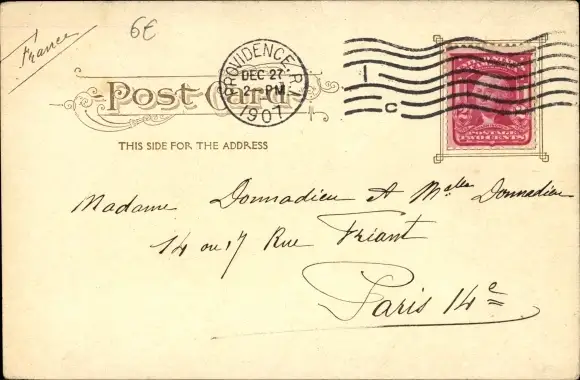 France
6€
Post Card
PROVIDENCE, R.I.
DEC 27
2 - PM
1907
1
C
THIS SIDE FOR THE ADDRESS
POSTAGE
TWO CENTS
Madame Donnadieu et Melles Donnadieu
14 ou 17 Rue Friant
Paris 14e